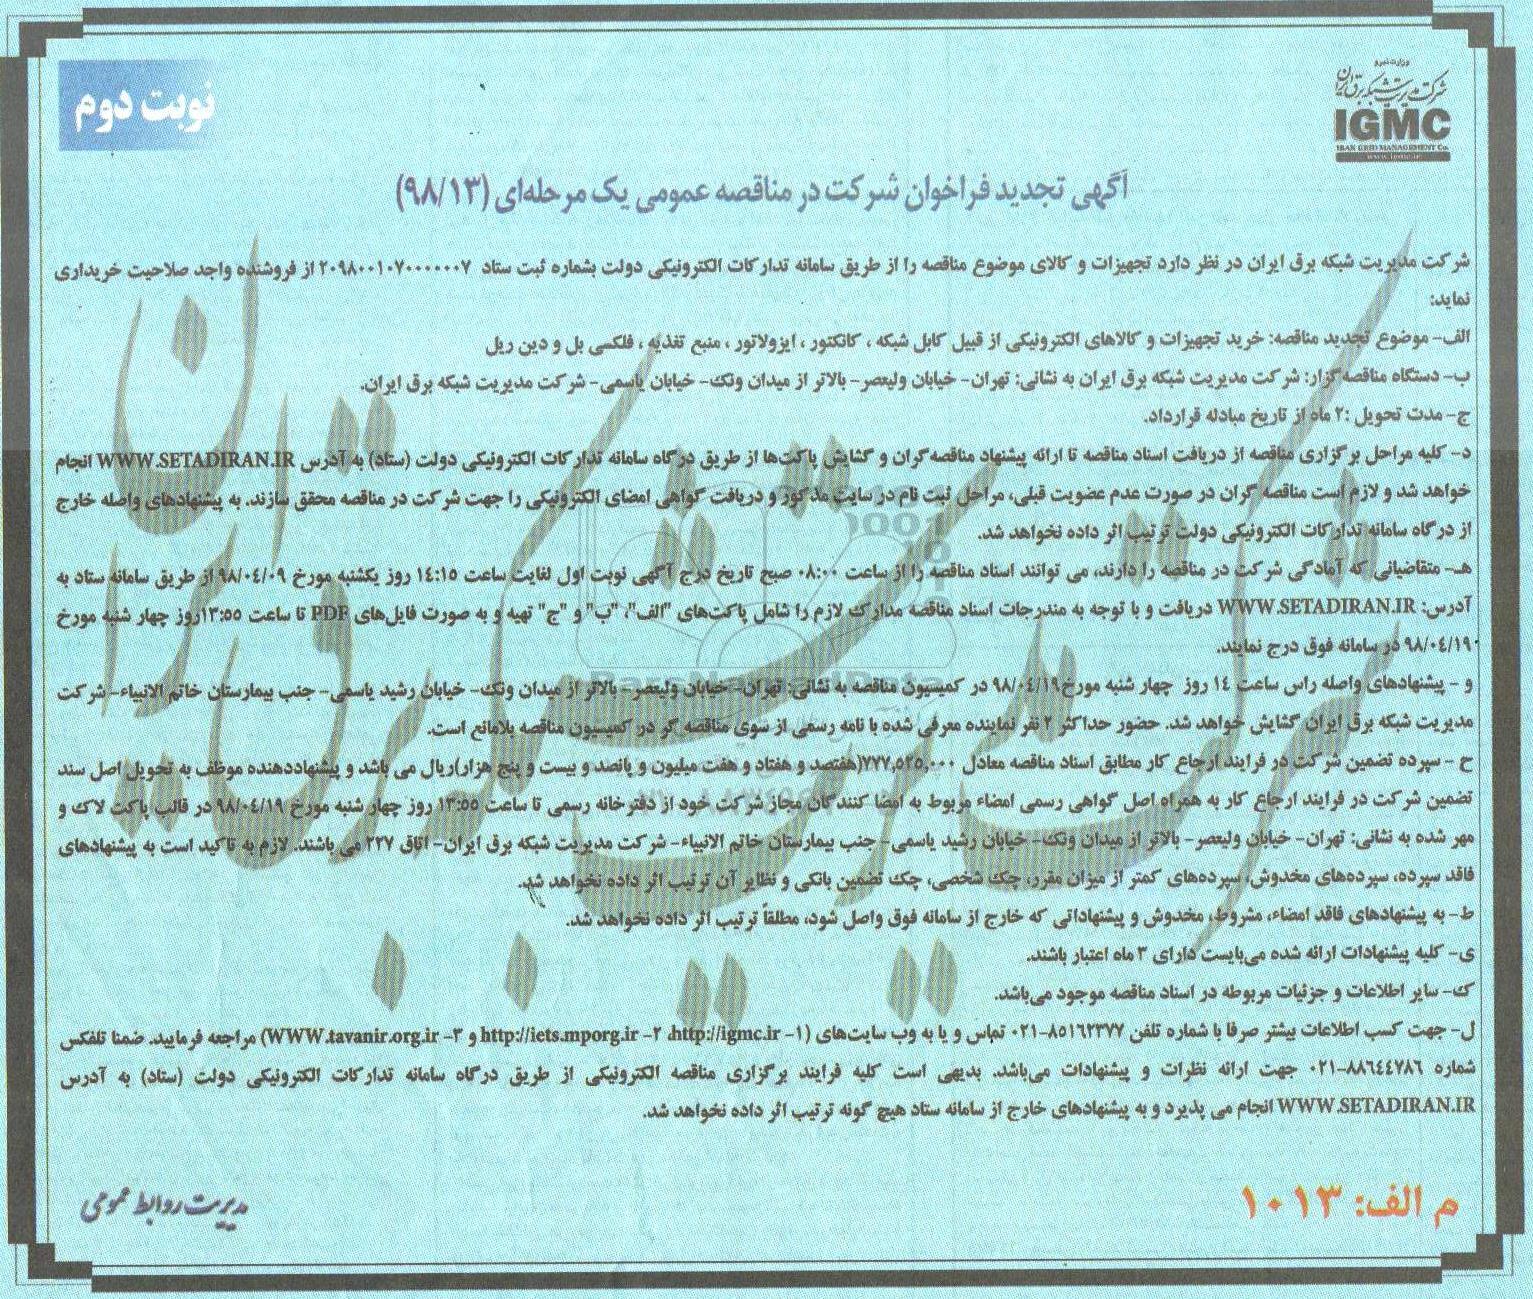 وزارت نیرو
شرکت مدیریت شبکه برق ایران
IGMC
IRAN GRID MANAGEMENT Co.
www.igmc.ir
نوبت دوم
آگهی تجدید فراخوان شرکت در مناقصه عمومی یک مرحله‌ای (۹۸/۱۳)
شرکت مدیریت شبکه برق ایران در نظر دارد تجهیزات و کالای موضوع مناقصه را از طریق سامانه تدارکات الکترونیکی دولت بشماره ثبت ستاد ۲۰۹۸۰۰۱۰۷۰۰۰۰۰۰۷ از فروشنده واجد صلاحیت خریداری
نماید:
الف- موضوع تجدید مناقصه: خرید تجهیزات و کالاهای الکترونیکی از قبیل کابل شبکه ، کانکتور ، ایزولاتور ، منبع تغذیه ، فلکسی بل و دین ریل
ب- دستگاه مناقصه گزار: شرکت مدیریت شبکه برق ایران به نشانی: تهران- خیابان ولیعصر- بالاتر از میدان ونک- خیابان یاسمی- شرکت مدیریت شبکه برق ایران.
ج- مدت تحویل :۲ ماه از تاریخ مبادله قرارداد.
د- کلیه مراحل برگزاری مناقصه از دریافت اسناد مناقصه تا ارائه پیشنهاد مناقصه‌گران و گشایش پاکت‌ها از طریق درگاه سامانه تدارکات الکترونیکی دولت (ستاد) به آدرس WWW.SETADIRAN.IR انجام
خواهد شد و لازم است مناقصه گران در صورت عدم عضویت قبلی، مراحل ثبت نام در سایت مذکور و دریافت گواهی امضای الکترونیکی را جهت شرکت در مناقصه محقق سازند. به پیشنهادهای واصله خارج
از درگاه سامانه تدارکات الکترونیکی دولت ترتیب اثر داده نخواهد شد.
هـ- متقاضیانی که آمادگی شرکت در مناقصه را دارند، می توانند اسناد مناقصه را از ساعت ۰۸:۰۰ صبح تاریخ درج آگهی نوبت اول لغایت ساعت ۱۴:۱۵ روز یکشنبه مورخ ۹۸/۰۴/۰۹ از طریق سامانه ستاد به
آدرس: WWW.SETADIRAN.IR دریافت و با توجه به مندرجات اسناد مناقصه مدارک لازم را شامل پاکت‌های "الف"، "ب" و "ج" تهیه و به صورت فایل‌های PDF تا ساعت ۱۳:۵۵روز چهار شنبه مورخ
۹۸/۰۴/۱۹ در سامانه فوق درج نمایند.
و - پیشنهادهای واصله راس ساعت ۱۴ روز چهار شنبه مورخ۹۸/۰۴/۱۹ در کمیسیون مناقصه به نشانی: تهران- خیابان ولیعصر- بالاتر از میدان ونک- خیابان رشید یاسمی- جنب بیمارستان خاتم الانبیاء- شرکت
مدیریت شبکه برق ایران گشایش خواهد شد. حضور حداکثر ۲ نفر نماینده معرفی شده با نامه رسمی از سوی مناقصه گر در کمیسیون مناقصه بلامانع است.
ح - سپرده تضمین شرکت در فرایند ارجاع کار مطابق اسناد مناقصه معادل ۷۷۷,۵۲۵,۰۰۰(هفتصد و هفتاد و هفت میلیون و پانصد و بیست و پنج هزار)ریال می باشد و پیشنهاددهنده موظف به تحویل اصل سند
تضمین شرکت در فرایند ارجاع کار به همراه اصل گواهی رسمی امضاء مربوط به امضا کنندگان مجاز شرکت خود از دفترخانه رسمی تا ساعت ۱۳:۵۵ روز چهار شنبه مورخ ۹۸/۰۴/۱۹ در قالب پاکت لاک و
مهر شده به نشانی: تهران- خیابان ولیعصر- بالاتر از میدان ونک- خیابان رشید یاسمی- جنب بیمارستان خاتم الانبیاء- شرکت مدیریت شبکه برق ایران- اتاق ۲۲۷ می باشند. لازم به تاکید است به پیشنهادهای
فاقد سپرده، سپرده‌های مخدوش، سپرده‌های کمتر از میزان مقرر، چک شخصی، چک تضمین بانکی و نظایر آن ترتیب اثر داده نخواهد شد.
ط- به پیشنهادهای فاقد امضاء، مشروط، مخدوش و پیشنهاداتی که خارج از سامانه فوق واصل شود، مطلقاً ترتیب اثر داده نخواهد شد.
ی- کلیه پیشنهادات ارائه شده می‌بایست دارای ۳ ماه اعتبار باشند.
ک- سایر اطلاعات و جزئیات مربوطه در اسناد مناقصه موجود می‌باشد.
ل- جهت کسب اطلاعات بیشتر صرفا با شماره تلفن ۸۵۱۶۲۳۷۷-۰۲۱ تماس و یا به وب سایت‌های (۱- http://igmc.ir، ۲- http://iets.mporg.ir و ۳- WWW.tavanir.org.ir) مراجعه فرمایید. ضمنا تلفکس
شماره ۸۸۶۴۴۷۸۶-۰۲۱ جهت ارائه نظرات و پیشنهادات می‌باشد. بدیهی است کلیه فرایند برگزاری مناقصه الکترونیکی از طریق درگاه سامانه تدارکات الکترونیکی دولت (ستاد) به آدرس
WWW.SETADIRAN.IR انجام می پذیرد و به پیشنهادهای خارج از سامانه ستاد هیچ گونه ترتیب اثر داده نخواهد شد.
م الف: ۱۰۱۳
مدیریت روابط عمومی